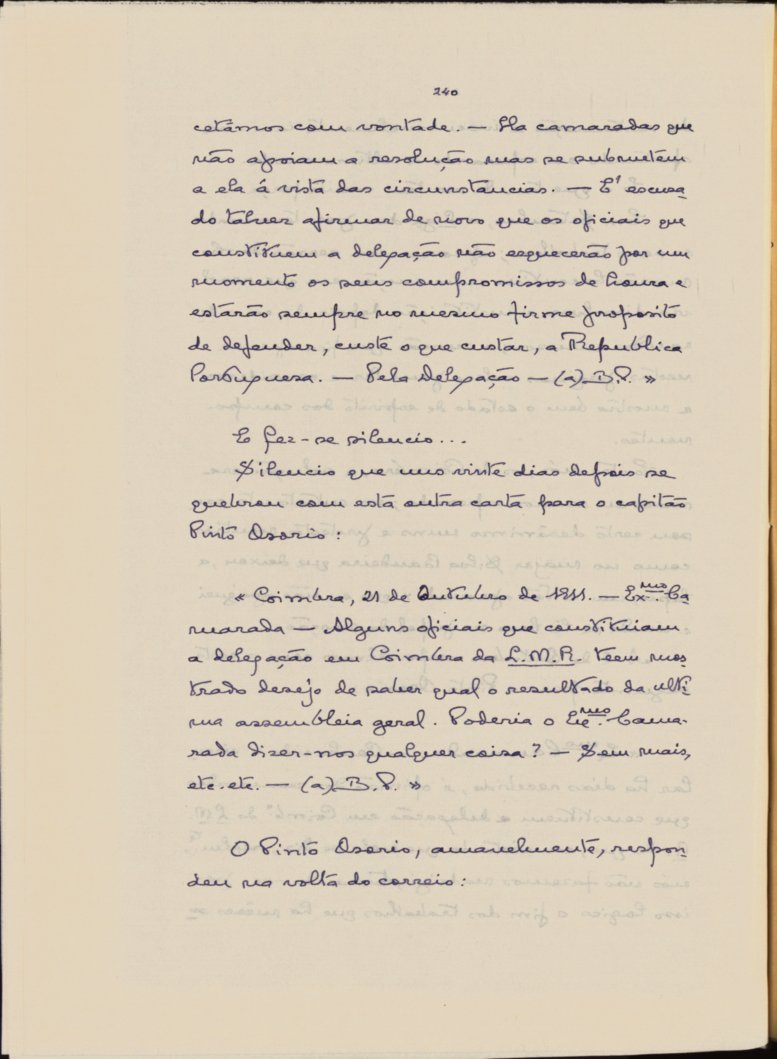 240
cetámos com vontade. — Ha camaradas que
não apoiam a resolução mas se submetem
a ela á vista das circunstancias. — E' escusa-
do talvez afirmar de novo que os oficiais que
constituem a delegação não esquecerão por um
momento os seus compromissos de honra e
estarão sempre no mesmo firme proposito
de defender, custe o que custar, a Republica
Portuguesa. — Pela Delegação — (a) B. P. »
E fez-se silencio...
Silencio que uns vinte dias depois se
quebrou com esta outra carta para o capitão
Pinto Osorio:
« Coimbra, 21 de Outubro de 1911. — Ex.mo Ca-
marada — Alguns oficiais que constituiam
a delegação em Coimbra da L. M. R. teem mos-
trado desejo de saber qual o resultado da ulti-
ma assembleia geral. Poderia o Ex.mo Cama-
rada dizer-nos qualquer coisa? — Sem mais,
etc. etc. — (a) B. P. »
O Pinto Osorio, amavelmente, respon-
deu na volta do correio: